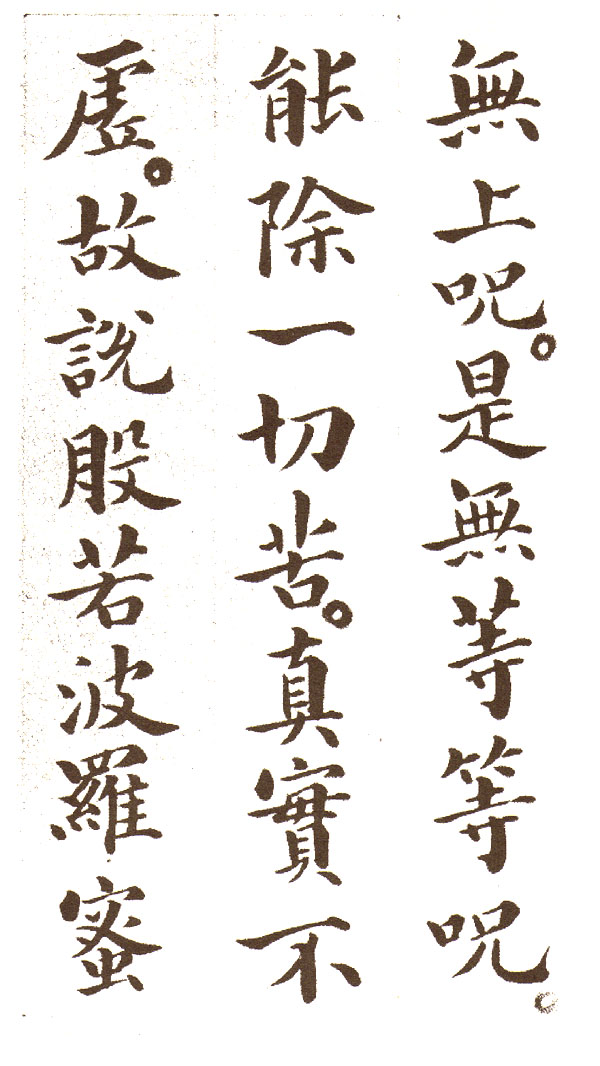 無上呪。是無等等呪。
能除一切苦。真實不
虛。故說般若波羅蜜